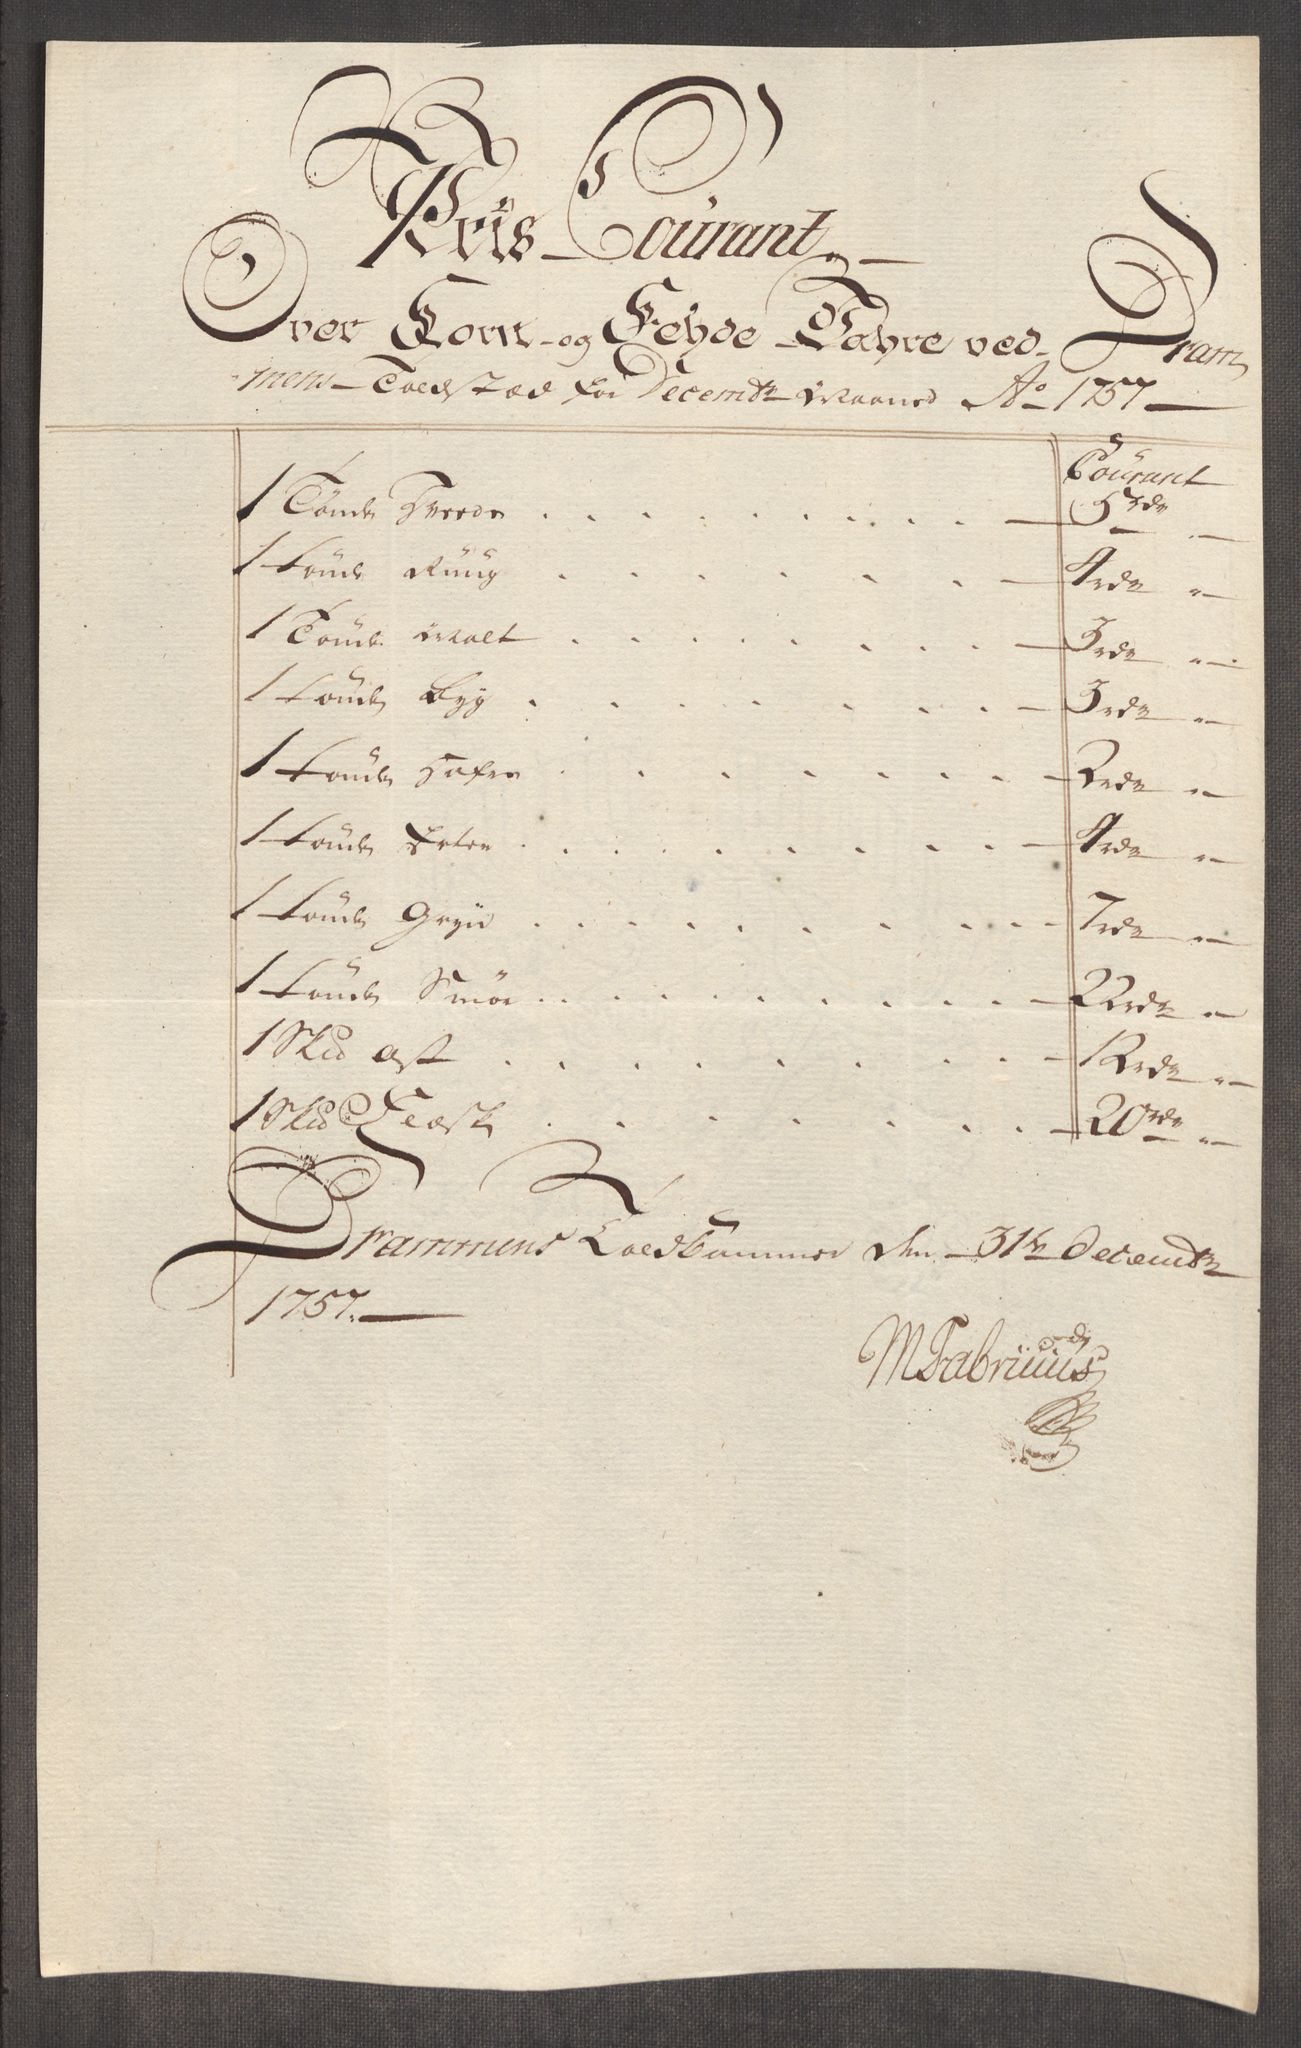 Pris Courant
Over Korn og Fehde Vahre ved Dram
mens Toldstæd for Decembr Maaned Ao 1757
Courant
1 Tönde Hvede . . . . . . . . . 5 rdr "
1 Tönde Rüüg . . . . . . . 4 rdr "
1 Tönde Malt . . . . . . . . 3 rdr "
1 Tönde Byg . . . . . . . . 3 rdr "
1 Tönde Hafre . . . . . . . 2 rdr "
1 Tönde Erter . . . . . . . . . 4 rdr "
1 Tönde Gryn . . . . . . . . . 7 rdr "
1 Tönde Smör . . . . . . . . . 22 rdr "
1 Skd Ost . . . . . . . . . 12 rdr "
1 Skd Flesk . . . . . . . 20 rdr "
Drammens Toldkammer den 31te Decembr
1757.
M Fabritius